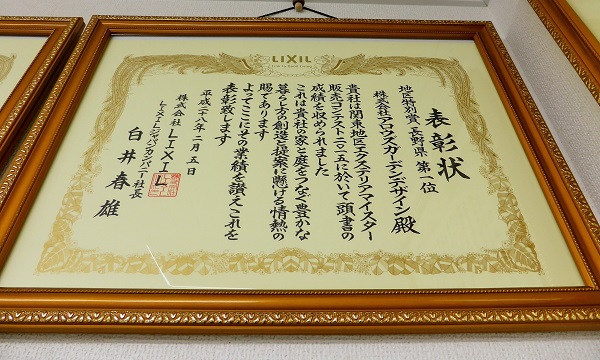 LIXIL
Link to Good Living
表彰状
地区特別賞 長野県 第一位
株式会社アロウズガーデンデザイン殿
貴社は関東地区エクステリアマイスター
販売コンテスト二〇一五に於いて頭書の
成績を収められました
これは貴社の家と庭をつなぐ豊かな
暮らし方の創造と提案に懸ける情熱の
賜であります
よってここにその業績を讃えこれを
表彰致します
平成二十八年二月五日
株式会社 LIXIL
LIXILジャパンカンパニー社長
白井春雄